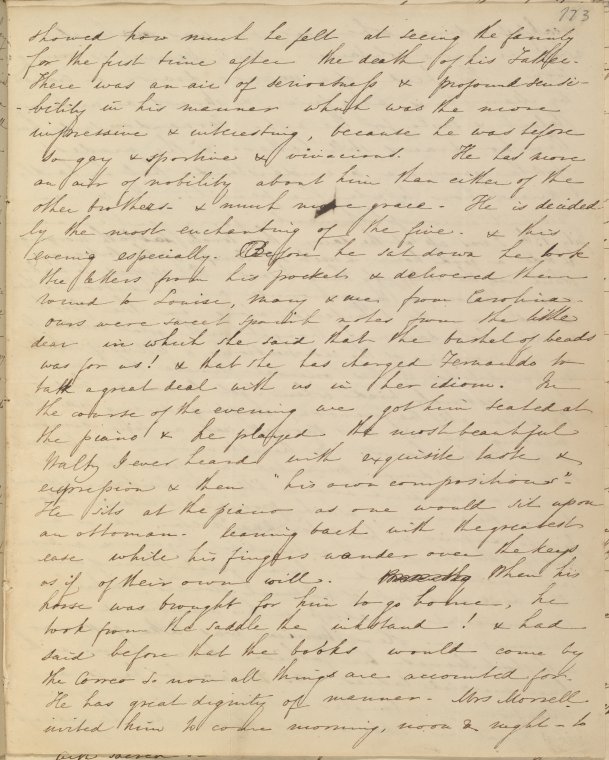 173
showed how much he felt at seeing the family
for the first time after the death of his Father.
There was an air of seriousness & profound sensi-
-bility in his manner which was the more
impressive & interesting, because he was before
so gay & sportive & vivacious. He has more
an air of nobility about him than either of the
other brothers - & much more grace - He is decided
ly the most enchanting of the five - & this
evening especially. Before he sat down he took
the letters from his pockets & delivered them
round to Louise, Mary & me from Carolina -
ours were sweet Spanish notes from the little
dear in which she said that the bushel of beads
was for us! & that she has charged Fernando to
talk a great deal with us in her idiom. In
the course of the evening we got him seated at
the piano & he played the most beautiful
Waltz I ever heard with exquisite taste &
expression & then "his own compositions"-
He sits at the piano as one would sit upon
an ottoman - leaning back with the greatest
ease while his fingers wander over the keys
as if of their own will. When his
horse was brought for him to go home, he
took from the saddle the inkstand! & had
said before that the books would come by
the Correo so now all things are accounted for.
He has great dignity of manner - Mrs Morrell
invited him to come morning, noon & night - to